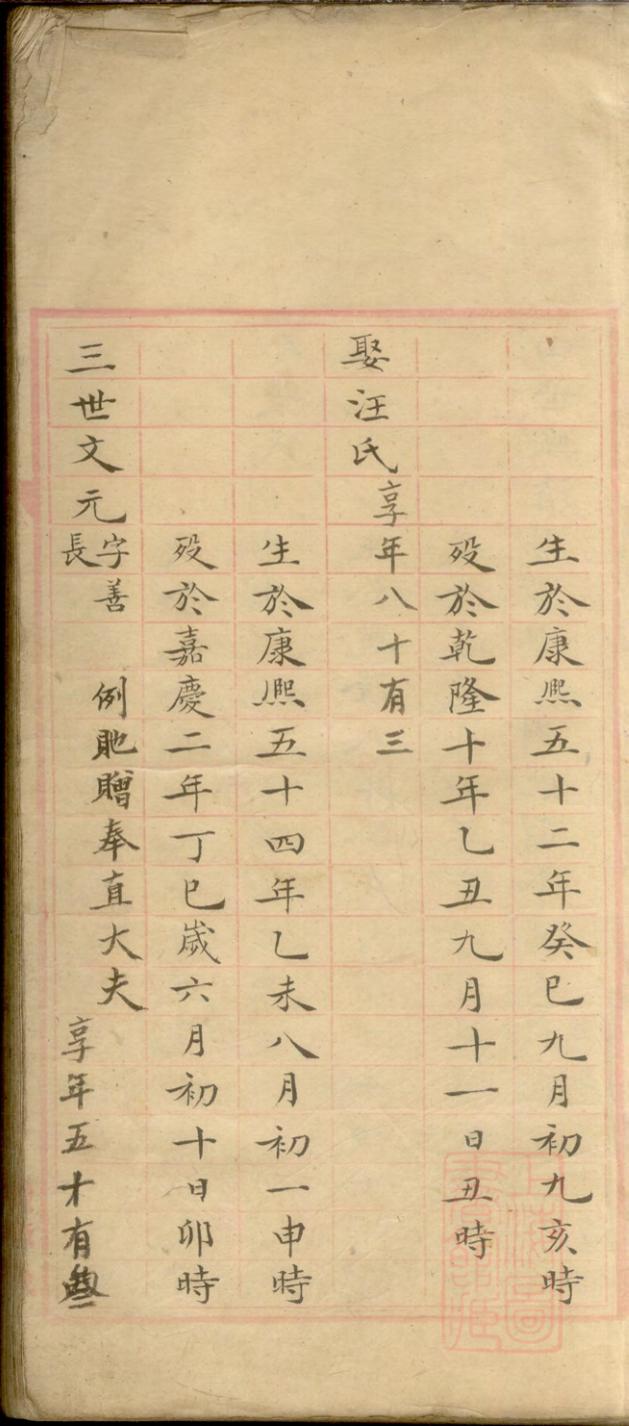 生於康熙五十二年癸巳九月初九亥時
歿於乾隆十年乙丑九月十一日丑時
娶汪氏享年八十有三
生於康熙五十四年乙未八月初一申時
歿於嘉慶二年丁巳歲六月初十日卯時
三世文元字善長 例貤贈奉直大夫 享年五十有叁